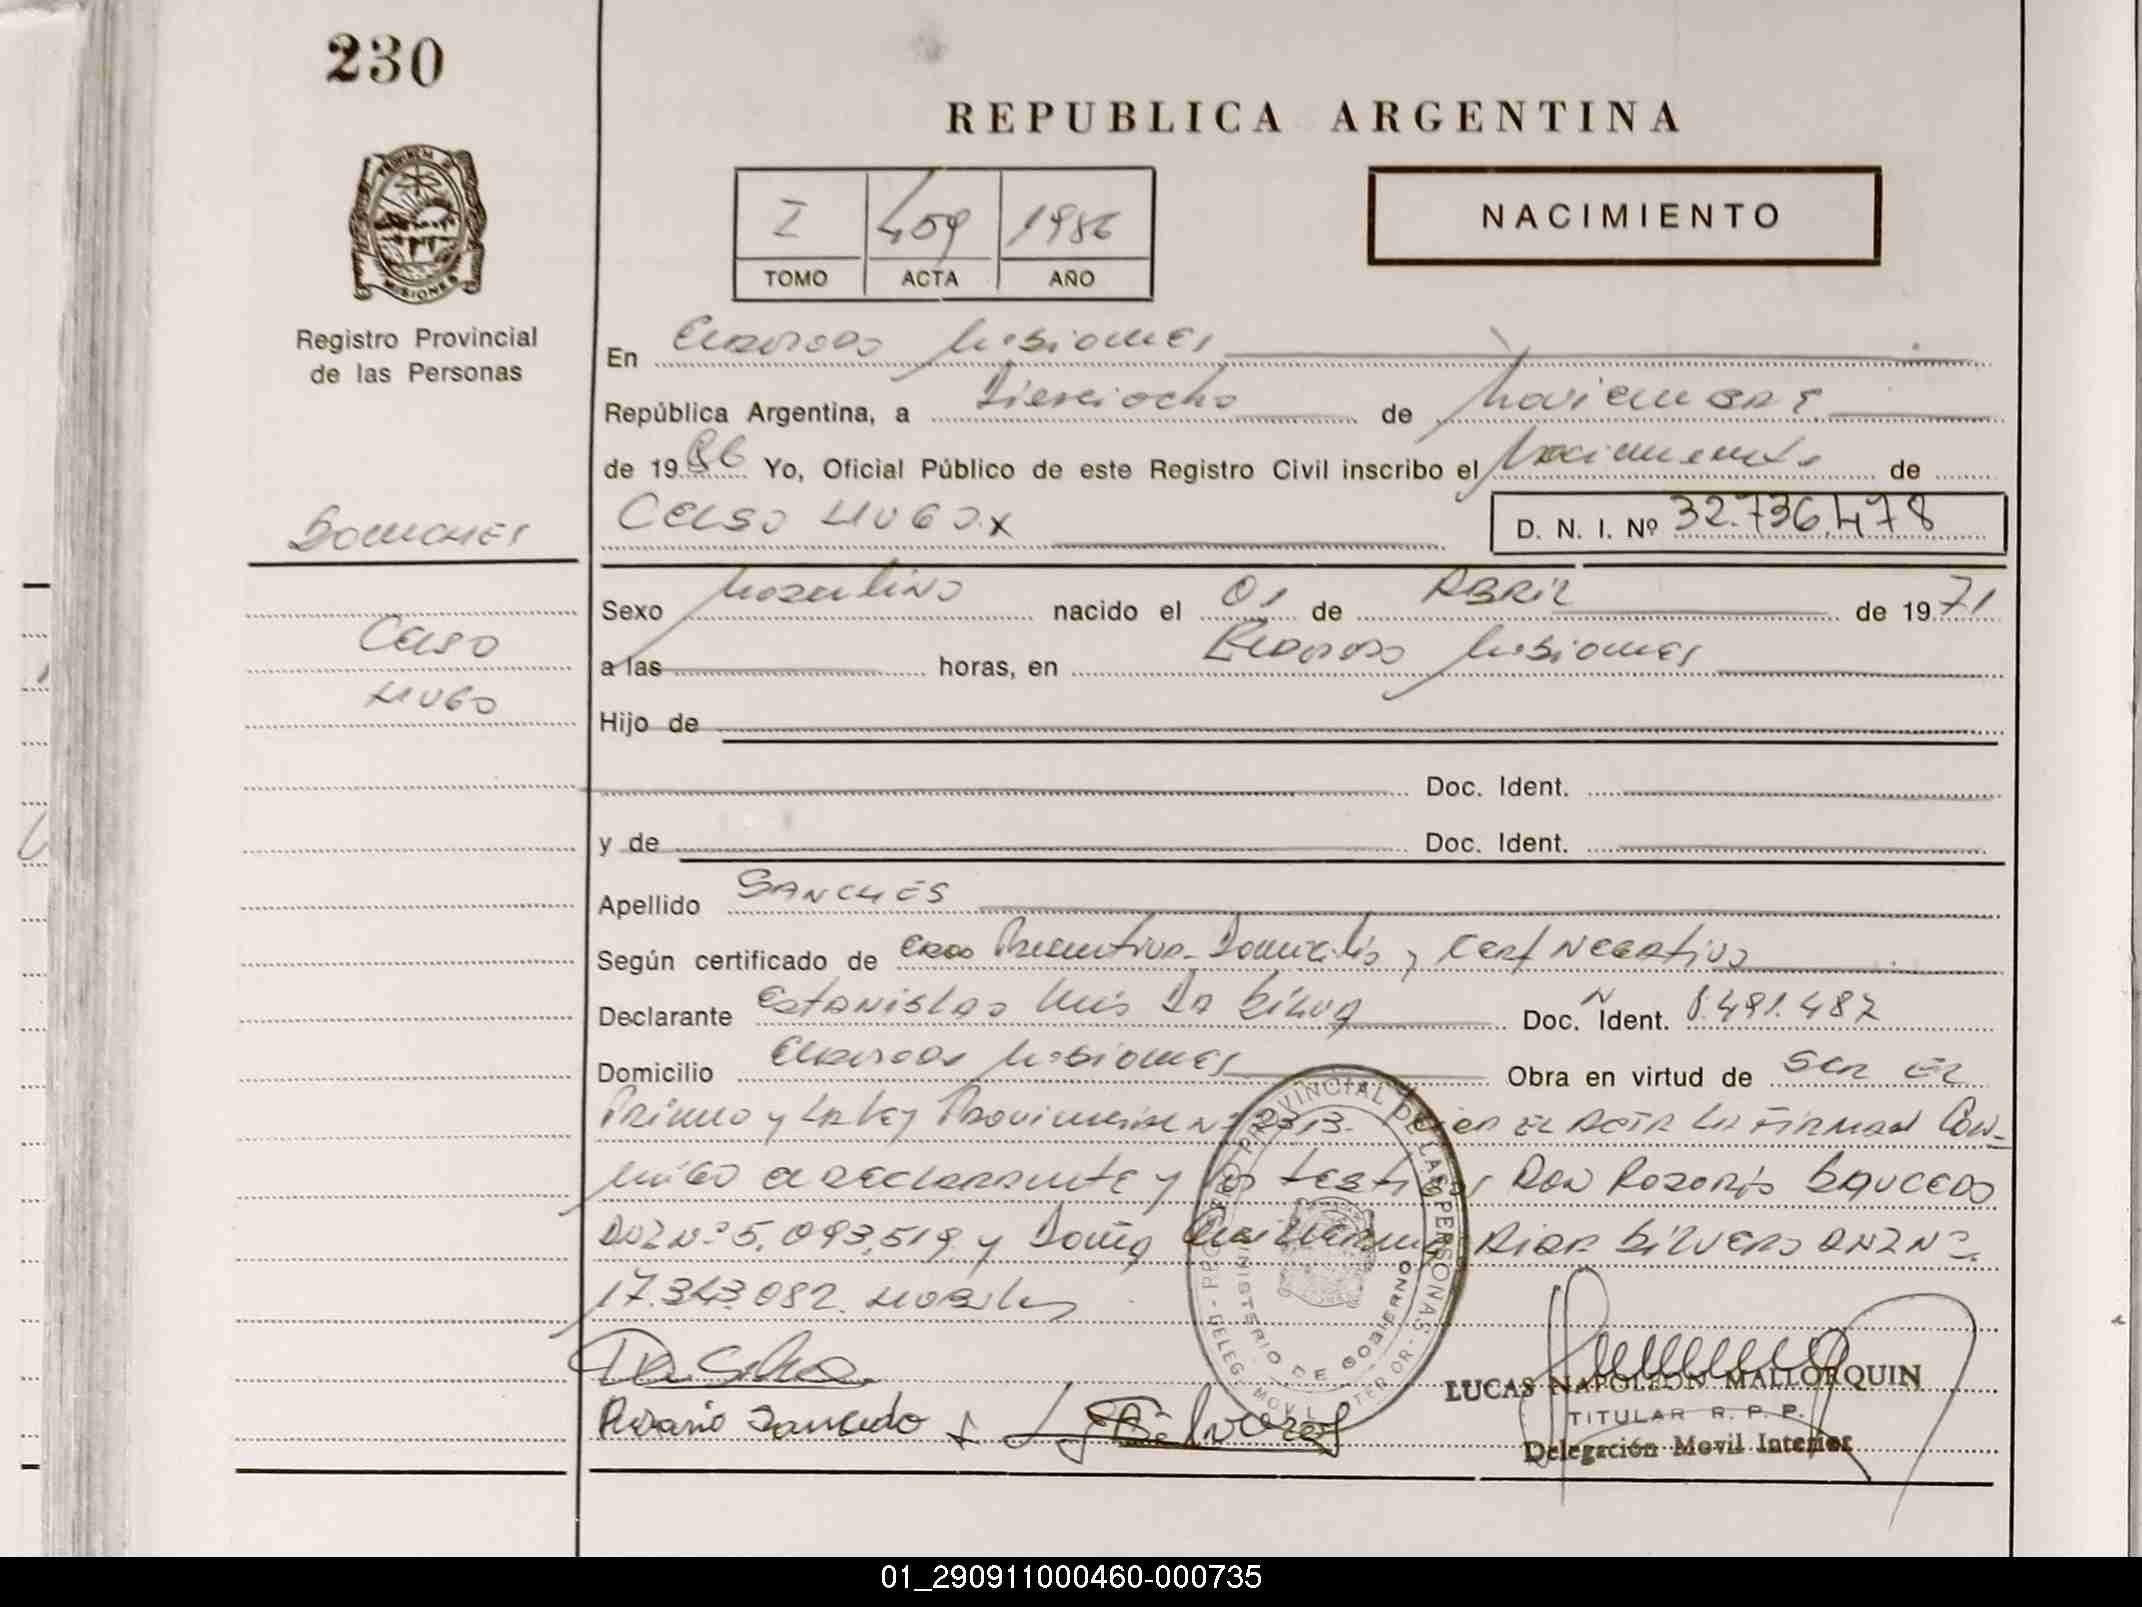 230
REPUBLICA ARGENTINA
PROVINCIA DE
MISIONES
Registro Provincial
de las Personas
I 459 1986
TOMO ACTA AÑO
NACIMIENTO
En Eldorado Misiones
República Argentina, a Dieciocho de Noviembre
de 1986 Yo, Oficial Público de este Registro Civil inscribo el Nacimiento de
Celso Hugo.x
D. N. I. Nº 32.736.478
Sanches
Celso
Hugo
Sexo Masculino nacido el 01 de Abril de 1971
a las horas, en Eldorado Misiones
Hijo de
Doc. Ident.
y de Doc. Ident.
Apellido SANCHES
Según certificado de Edad Presuntiva-Domicilio y Cert Negativo
Declarante Estanislao Luis Da Silva Doc. Ident. 8.491.487
Domicilio Eldorado Misiones Obra en virtud de Ser el
Primo y la Ley Provincial Nº 2313. el acta la firman Con-
migo el declarante y los testigos Don Rosario Saucedo
DNI Nº 5.093.519 y Doña Silvero DNI Nº
17.343.082.
Da Silva
Rosario Saucedo
PROVINCIAL DE LAS PERSONAS
MINISTERIO DE GOBIERNO
DELEG. MOVIL INTERIOR
LUCAS NAPOLEON MALLORQUIN
TITULAR R. P. P.
Delegación Movil Interior
01_290911000460-000735